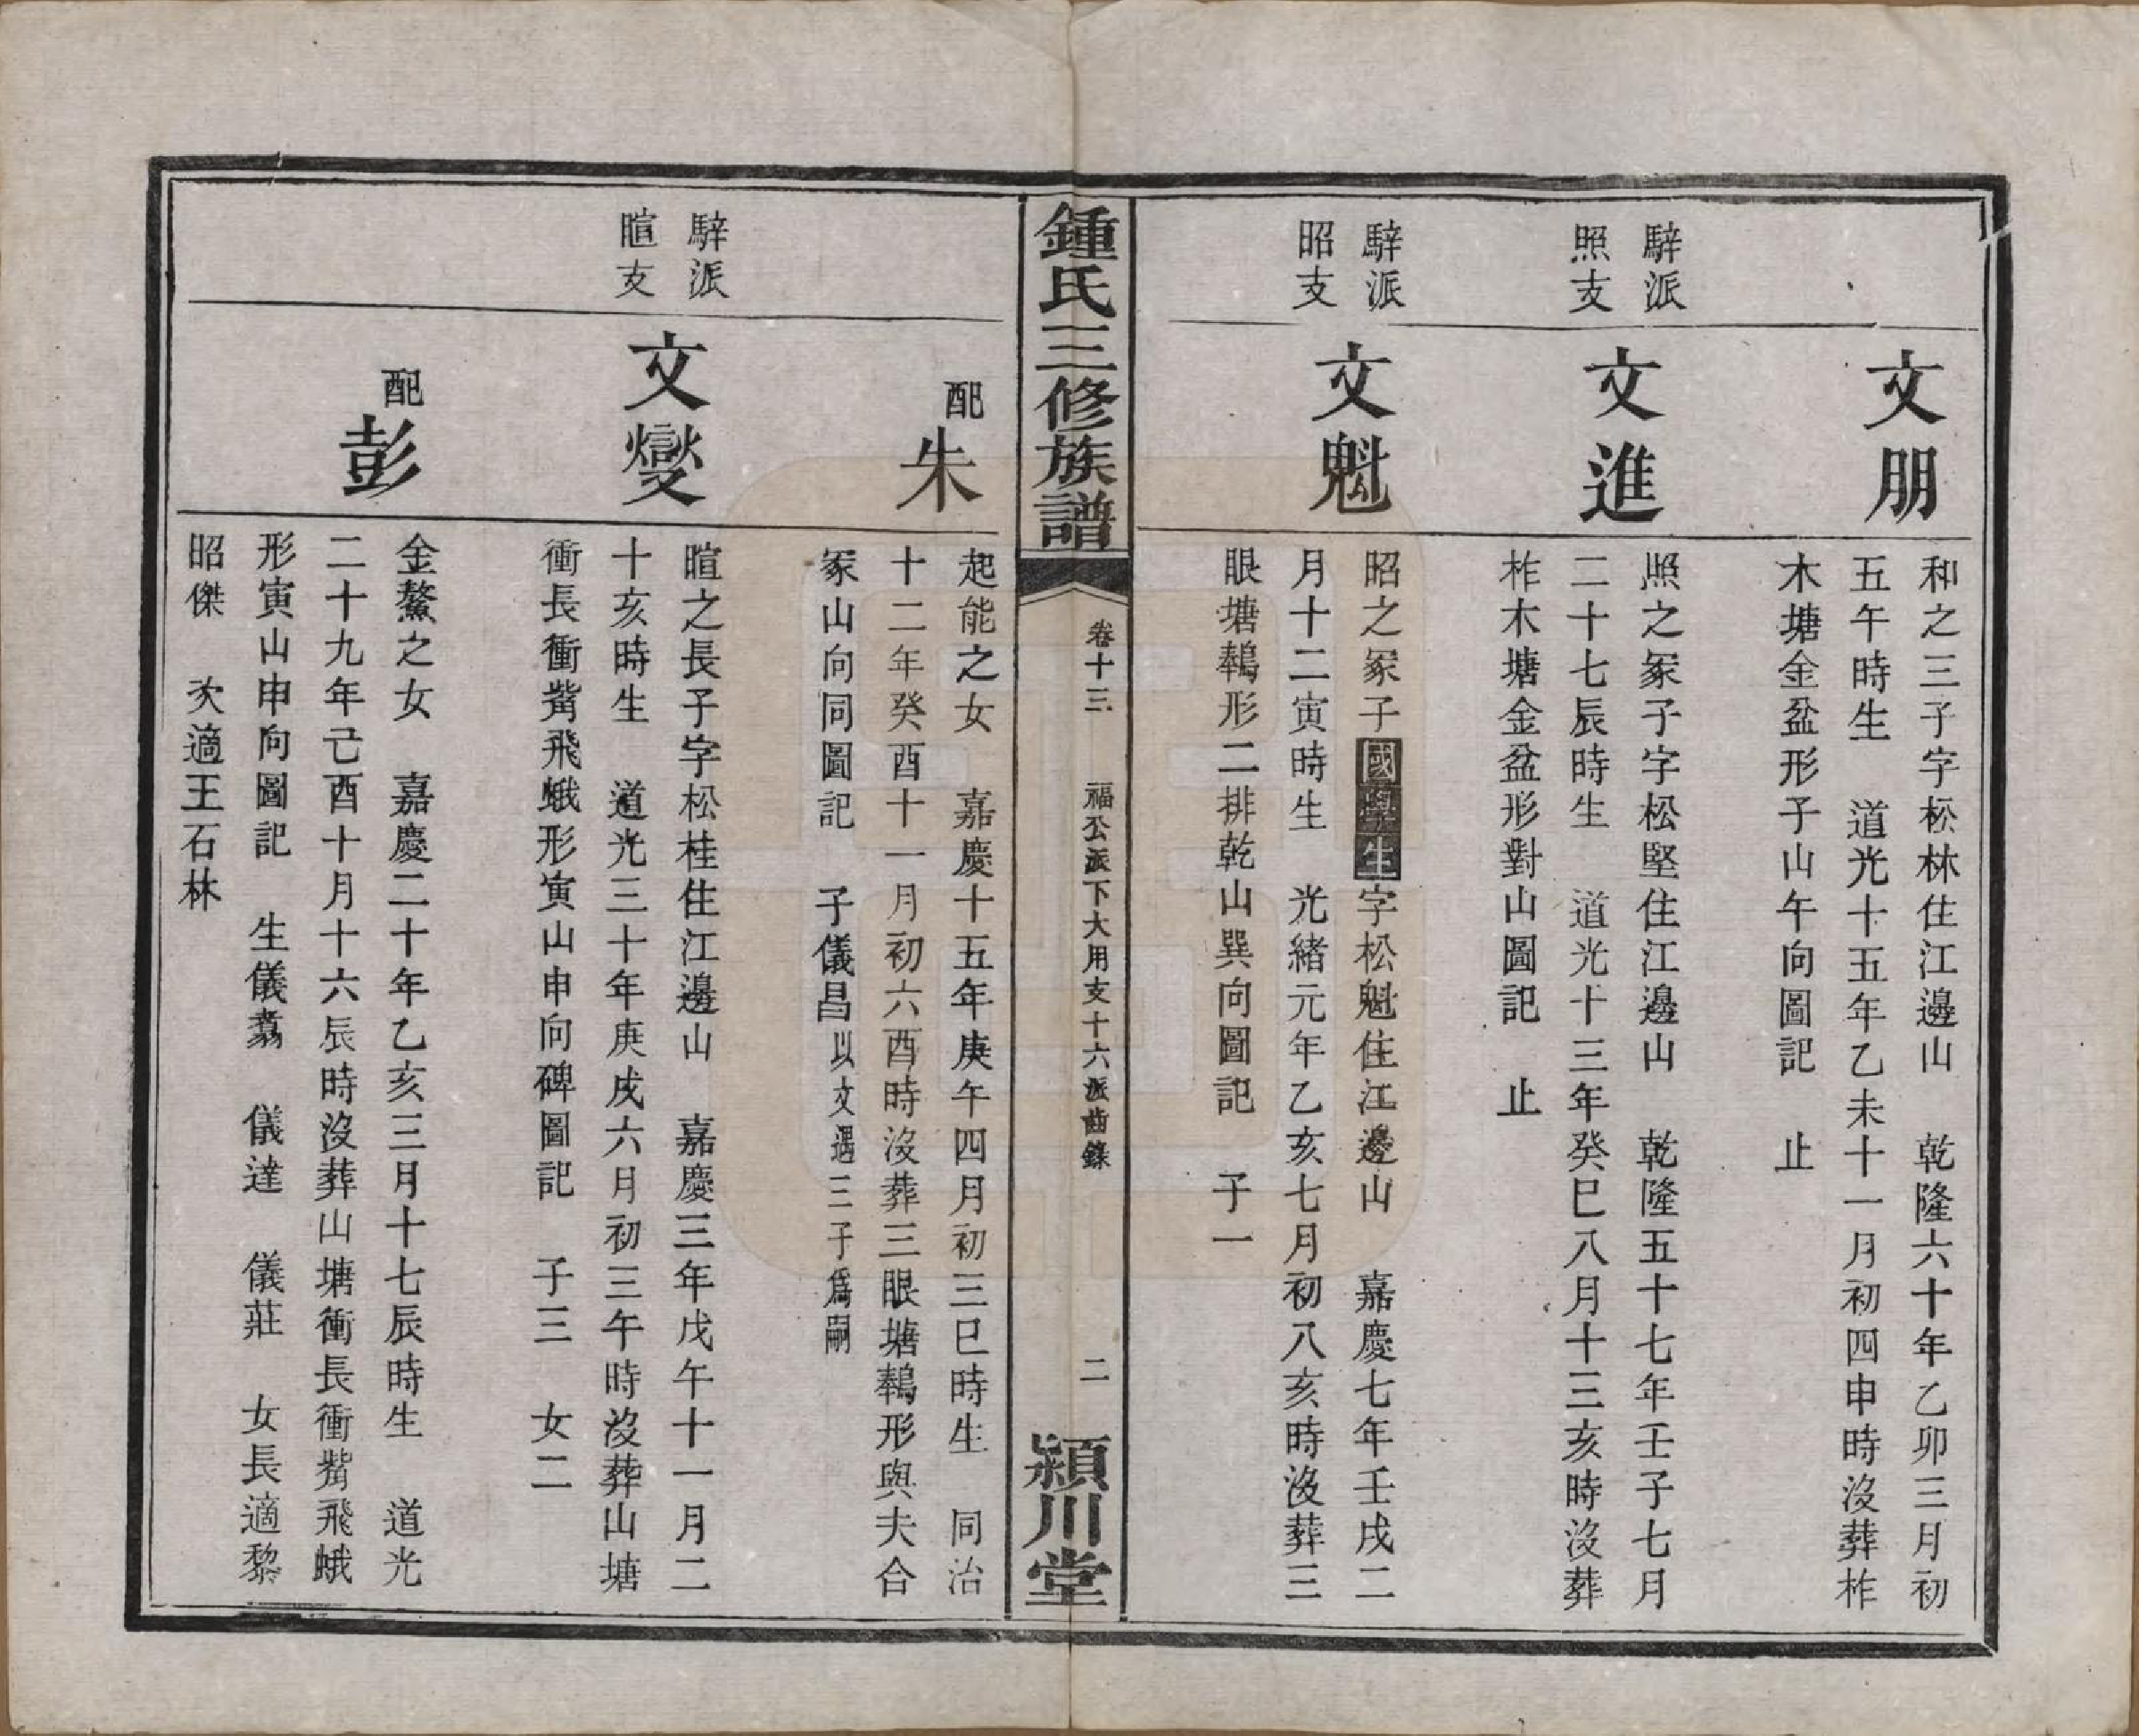 文朋
和之三子字松林住江邊山　乾隆六十年乙卯三月初
五午時生　道光十五年乙未十一月初四申時沒葬柞
木塘金盆形子山午向圖記　止
騂派
照支
文進
照之冢子字松堅住江邊山　乾隆五十七年壬子七月
二十七辰時生　道光十三年癸巳八月十三亥時沒葬
柞木塘金盆形對山圖記　止
騂派
昭支
文魁
昭之冢子國學生字松魁住江邊山　嘉慶七年壬戌二
月十二寅時生　光緒元年乙亥七月初八亥時沒葬三
眼塘鵝形二排乾山巽向圖記　子一
鍾氏三修族譜
卷十三　福公派下大用支十六派齒錄
二
潁川堂
配朱
起能之女　嘉慶十五年庚午四月初三巳時生　同治
十二年癸酉十一月初六酉時沒葬三眼塘鵝形與夫合
冢山向同圖記　子儀昌以文遇三子爲嗣
騂派
暄支
文燮
暄之長子字松桂住江邊山　嘉慶三年戊午十一月二
十亥時生　道光三十年庚戌六月初三午時沒葬山塘
衝長衝觜飛蛾形寅山申向碑圖記　子三　女二
配彭
金鰲之女　嘉慶二十年乙亥三月十七辰時生　道光
二十九年己酉十月十六辰時沒葬山塘衝長衝觜飛蛾
形寅山申向圖記　生儀翥　儀達　儀莊　女長適黎
昭傑　次適王石林